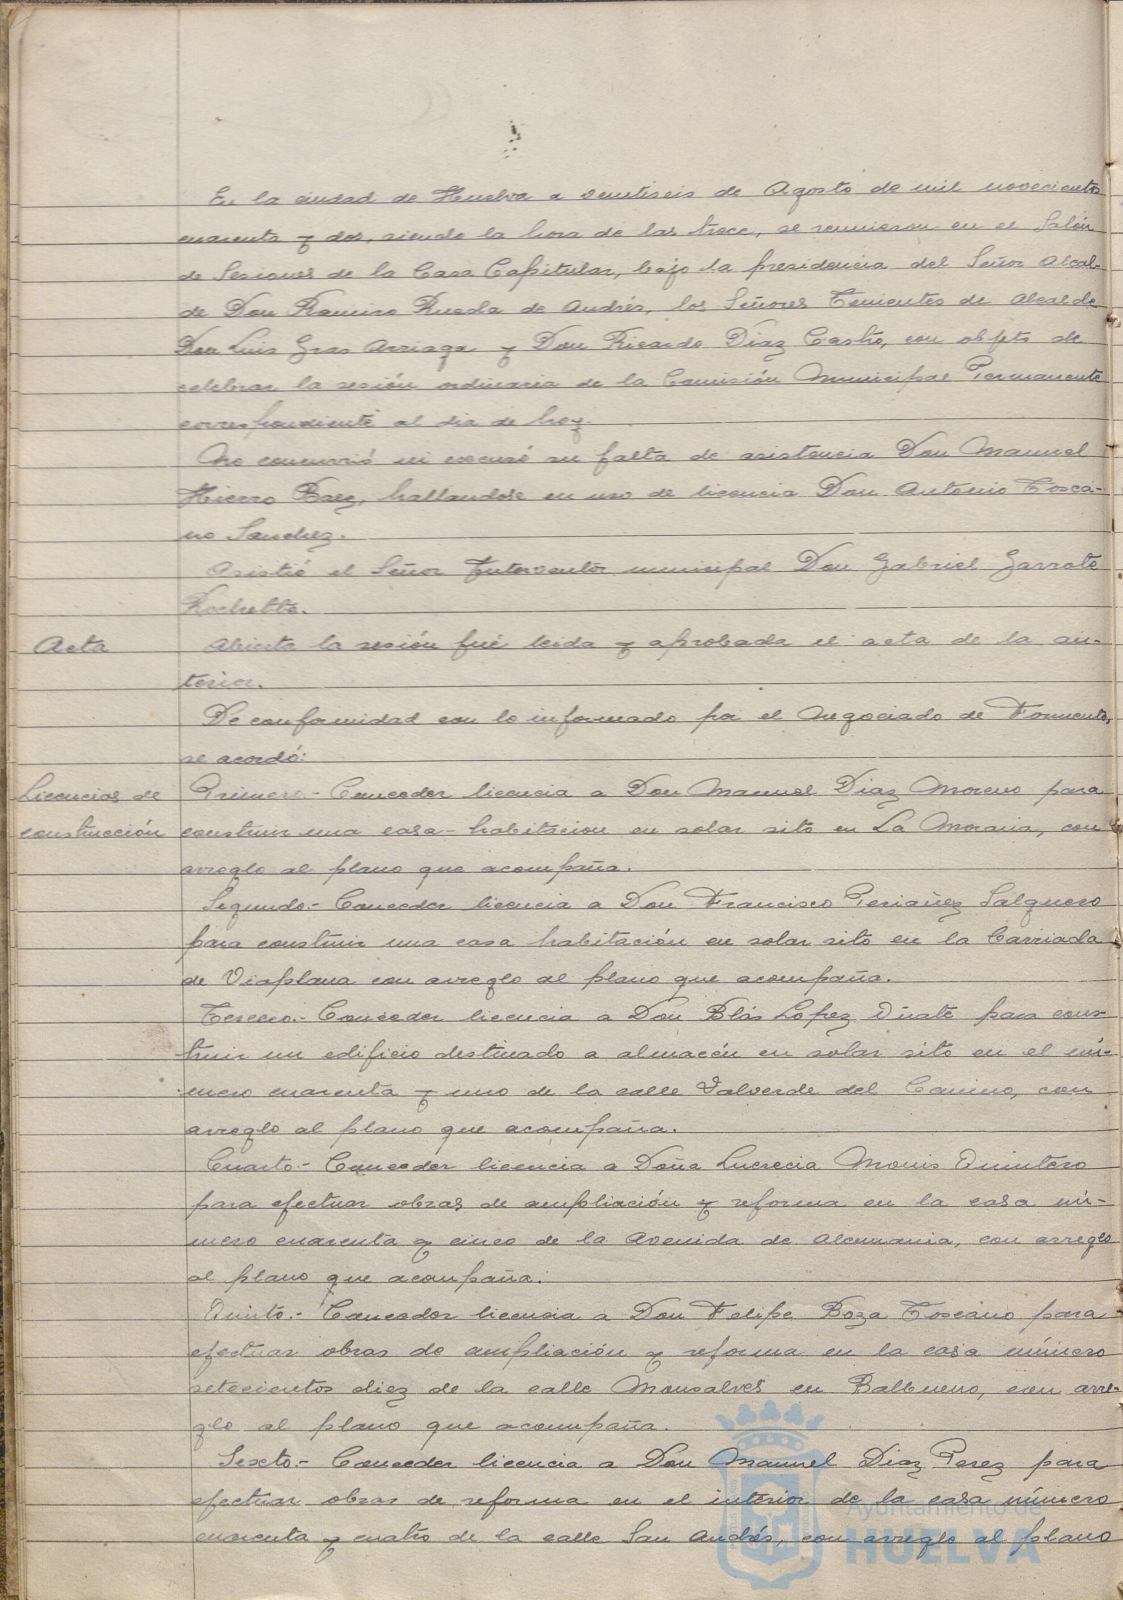 En la ciudad de Huelva a veintiseis de Agosto de mil novecientos
cuarenta y dos, siendo la hora de las trece, se reunieron en el Salón
de Sesiones de la Casa Capitular, bajo la presidencia del Señor Alcal-
de Don Ramiro Rueda de Andrés, los Señores Tenientes de Alcalde
Don Luis Gras Arriaga y Don Ricardo Diaz Castro, con objeto de
celebrar la sesión ordinaria de la Comisión Municipal Permanente
correspondiente al dia de hoy.
No concurrió ni excusó su falta de asistencia Don Manuel
Hierro Baez, hallandose en uso de licencia Don Antonio Tosca-
no Sanchez.
Asistió el Señor Interventor municipal Don Gabriel Garrote
Rochette.
Acta
Abierta la sesión fué leida y aprobada el acta de la an-
terior.
De conformidad con lo informado por el Negociado de Fomento,
se acordó:
Licencias de
construcción
Primero.- Conceder licencia a Don Manuel Diaz Moreno para
construir una casa-habitacion en solar sito en La Morana, con
arreglo al plano que acompaña.
Segundo.- Conceder licencia a Don Francisco Periañez Salguero
para construir una casa habitación en solar sito en la barriada
de Viaplana con arreglo al plano que acompaña.
Tercero.- Conceder licencia a Don Blás López para cons-
truir un edificio destinado a almacén en solar sito en el nú-
mero cuarenta y uno de la calle Valverde del Camino, con
arreglo al plano que acompaña.
Cuarto.- Conceder licencia a Doña Lucrecia Quintero
para efectuar obras de ampliación y reforma en la casa nú-
mero cuarenta y cinco de la Avenida de Alemania, con arreglo
al plano que acompaña.
Quinto.- Conceder licencia a Don Felipe Boza Toscano para
efectuar obras de ampliación y reforma en la casa número
setecientos diez de la calle Monsalves en Balbueno, con arre-
glo al plano que acompaña.
Sexto.- Conceder licencia a Don Manuel Diaz Perez para
efectuar obras de reforma en el interior de la casa número
cuarenta y cuatro de la calle San Andrés, con arreglo al plano
Ayuntamiento de
HUELVA